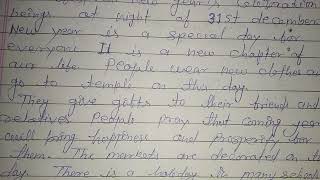 new year's celebration
beings at night of 31st december
New year is a special day for
everyone It is a new chapter of
our life. People wear new clothes and
go to temple on this day.
They give gifts to their friends and
relatives. People pray that coming year
will bring happiness and prosperity for
them. The markets are decorated on this
day. There is a holiday in many schools